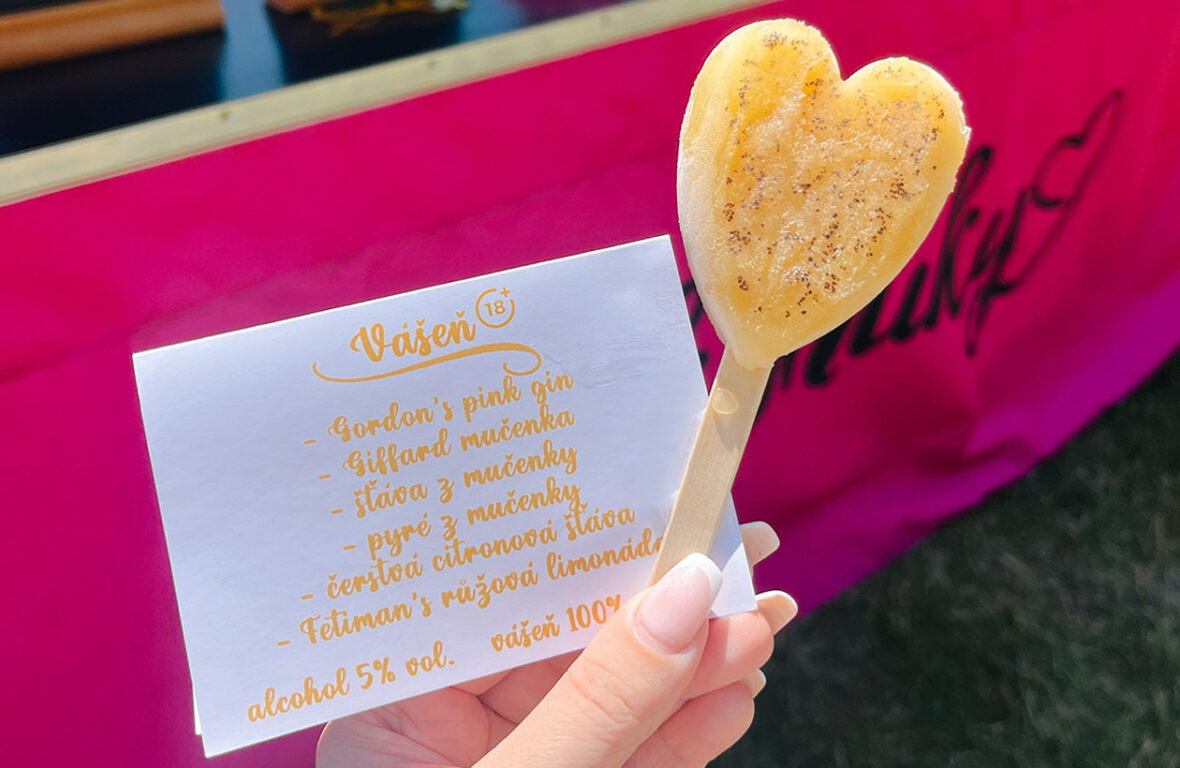 Vášeň 18+
- Gordon's pink gin
- Giffard mučenka
- šťáva z mučenky
- pyré z mučenky
- čerstvá citronová šťáva
- Fetiman's růžová limonáda
alcohol 5% vol. vášeň 100%